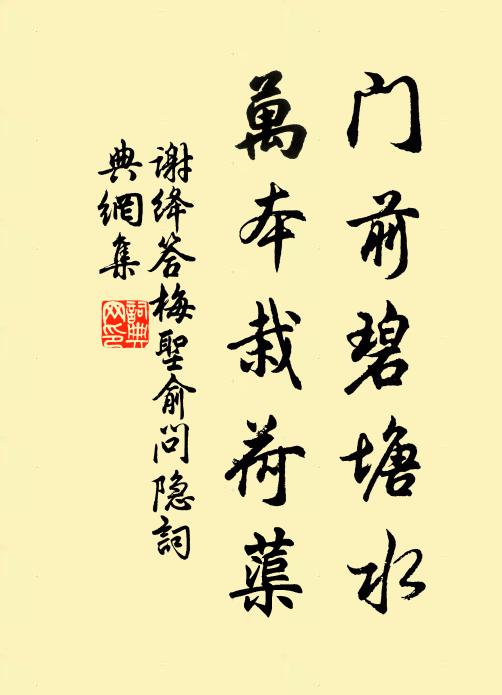 门前碧塘水
萬本栽荷蕖
谢绛答梅聖俞问隐詞
典網集
詞典網印